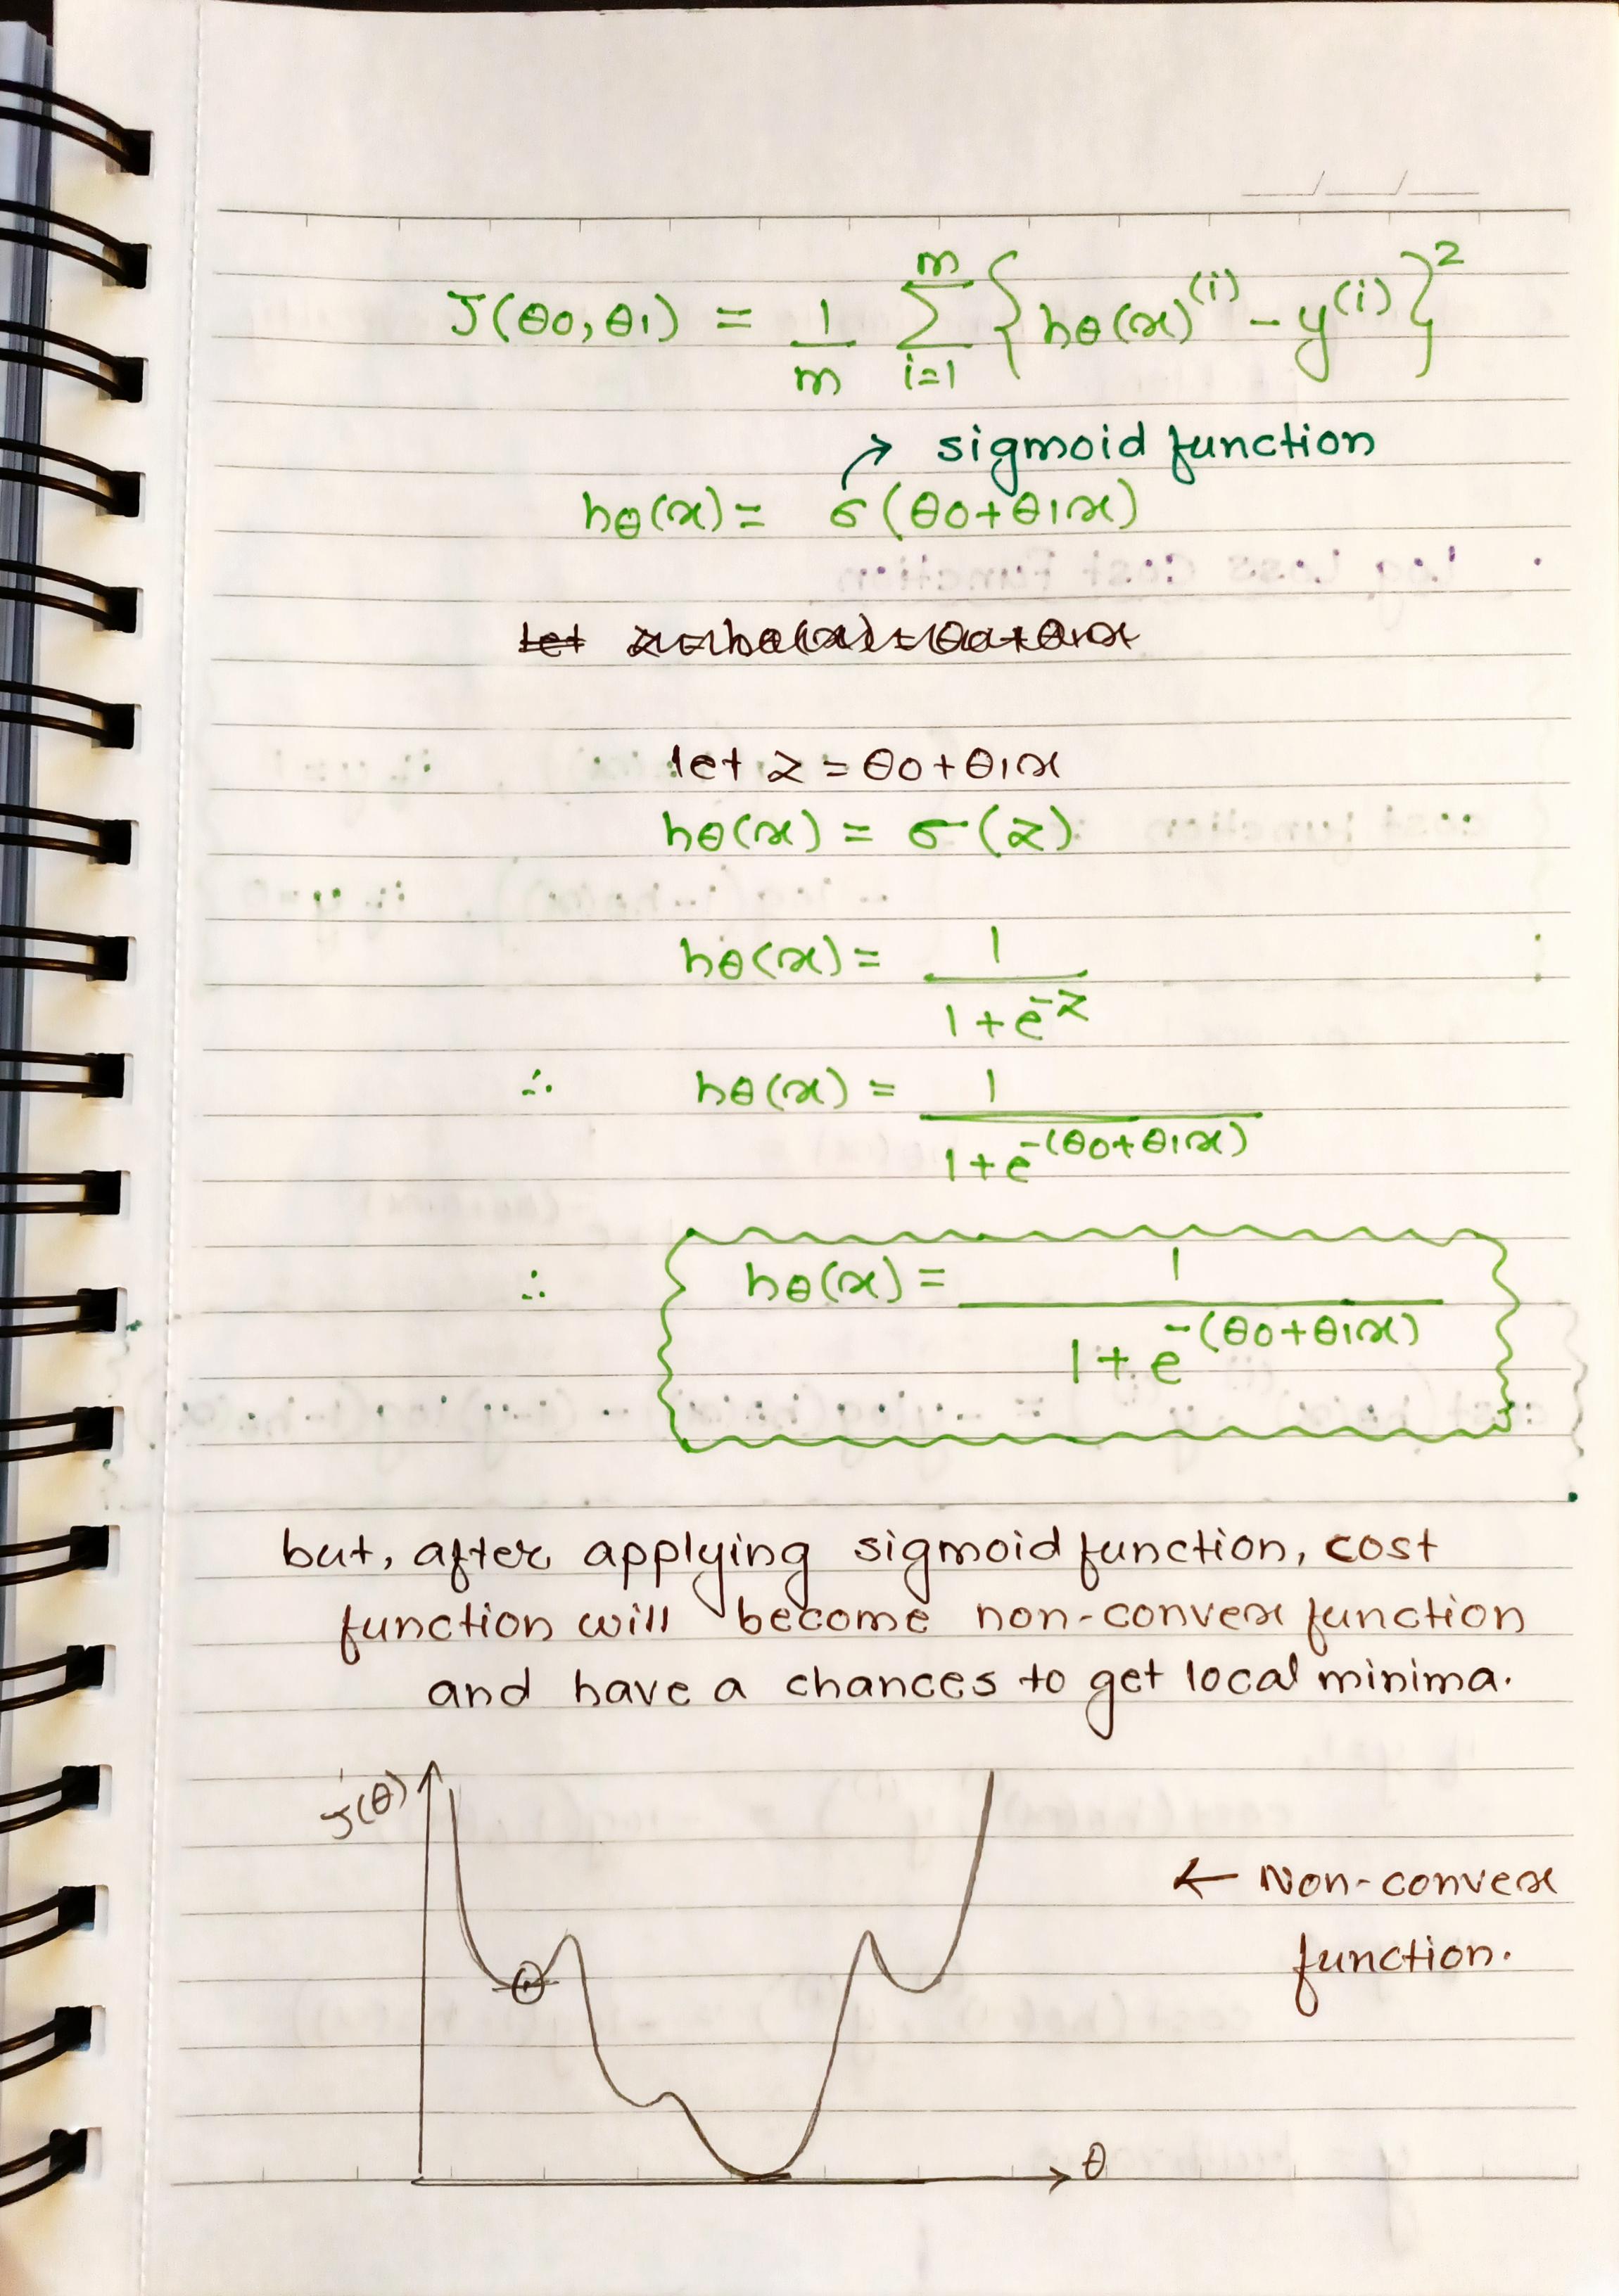 J(θ0,θ1) = 1/m Σ_{i=1}^{m} {hθ(x)^(i) - y^(i)}^2
→ sigmoid function
hθ(x) = σ(θ0+θ1x)
let z = θ0+θ1x
hθ(x) = σ(z)
hθ(x) = 1/(1+e^-z)
∴ hθ(x) = 1/(1+e^-(θ0+θ1x))
∴ hθ(x) = 1/(1+e^-(θ0+θ1x))
but, after applying sigmoid function, cost
function will become non-convex function
and have a chances to get local minima.
J(θ)
← Non-convex
function.
θ